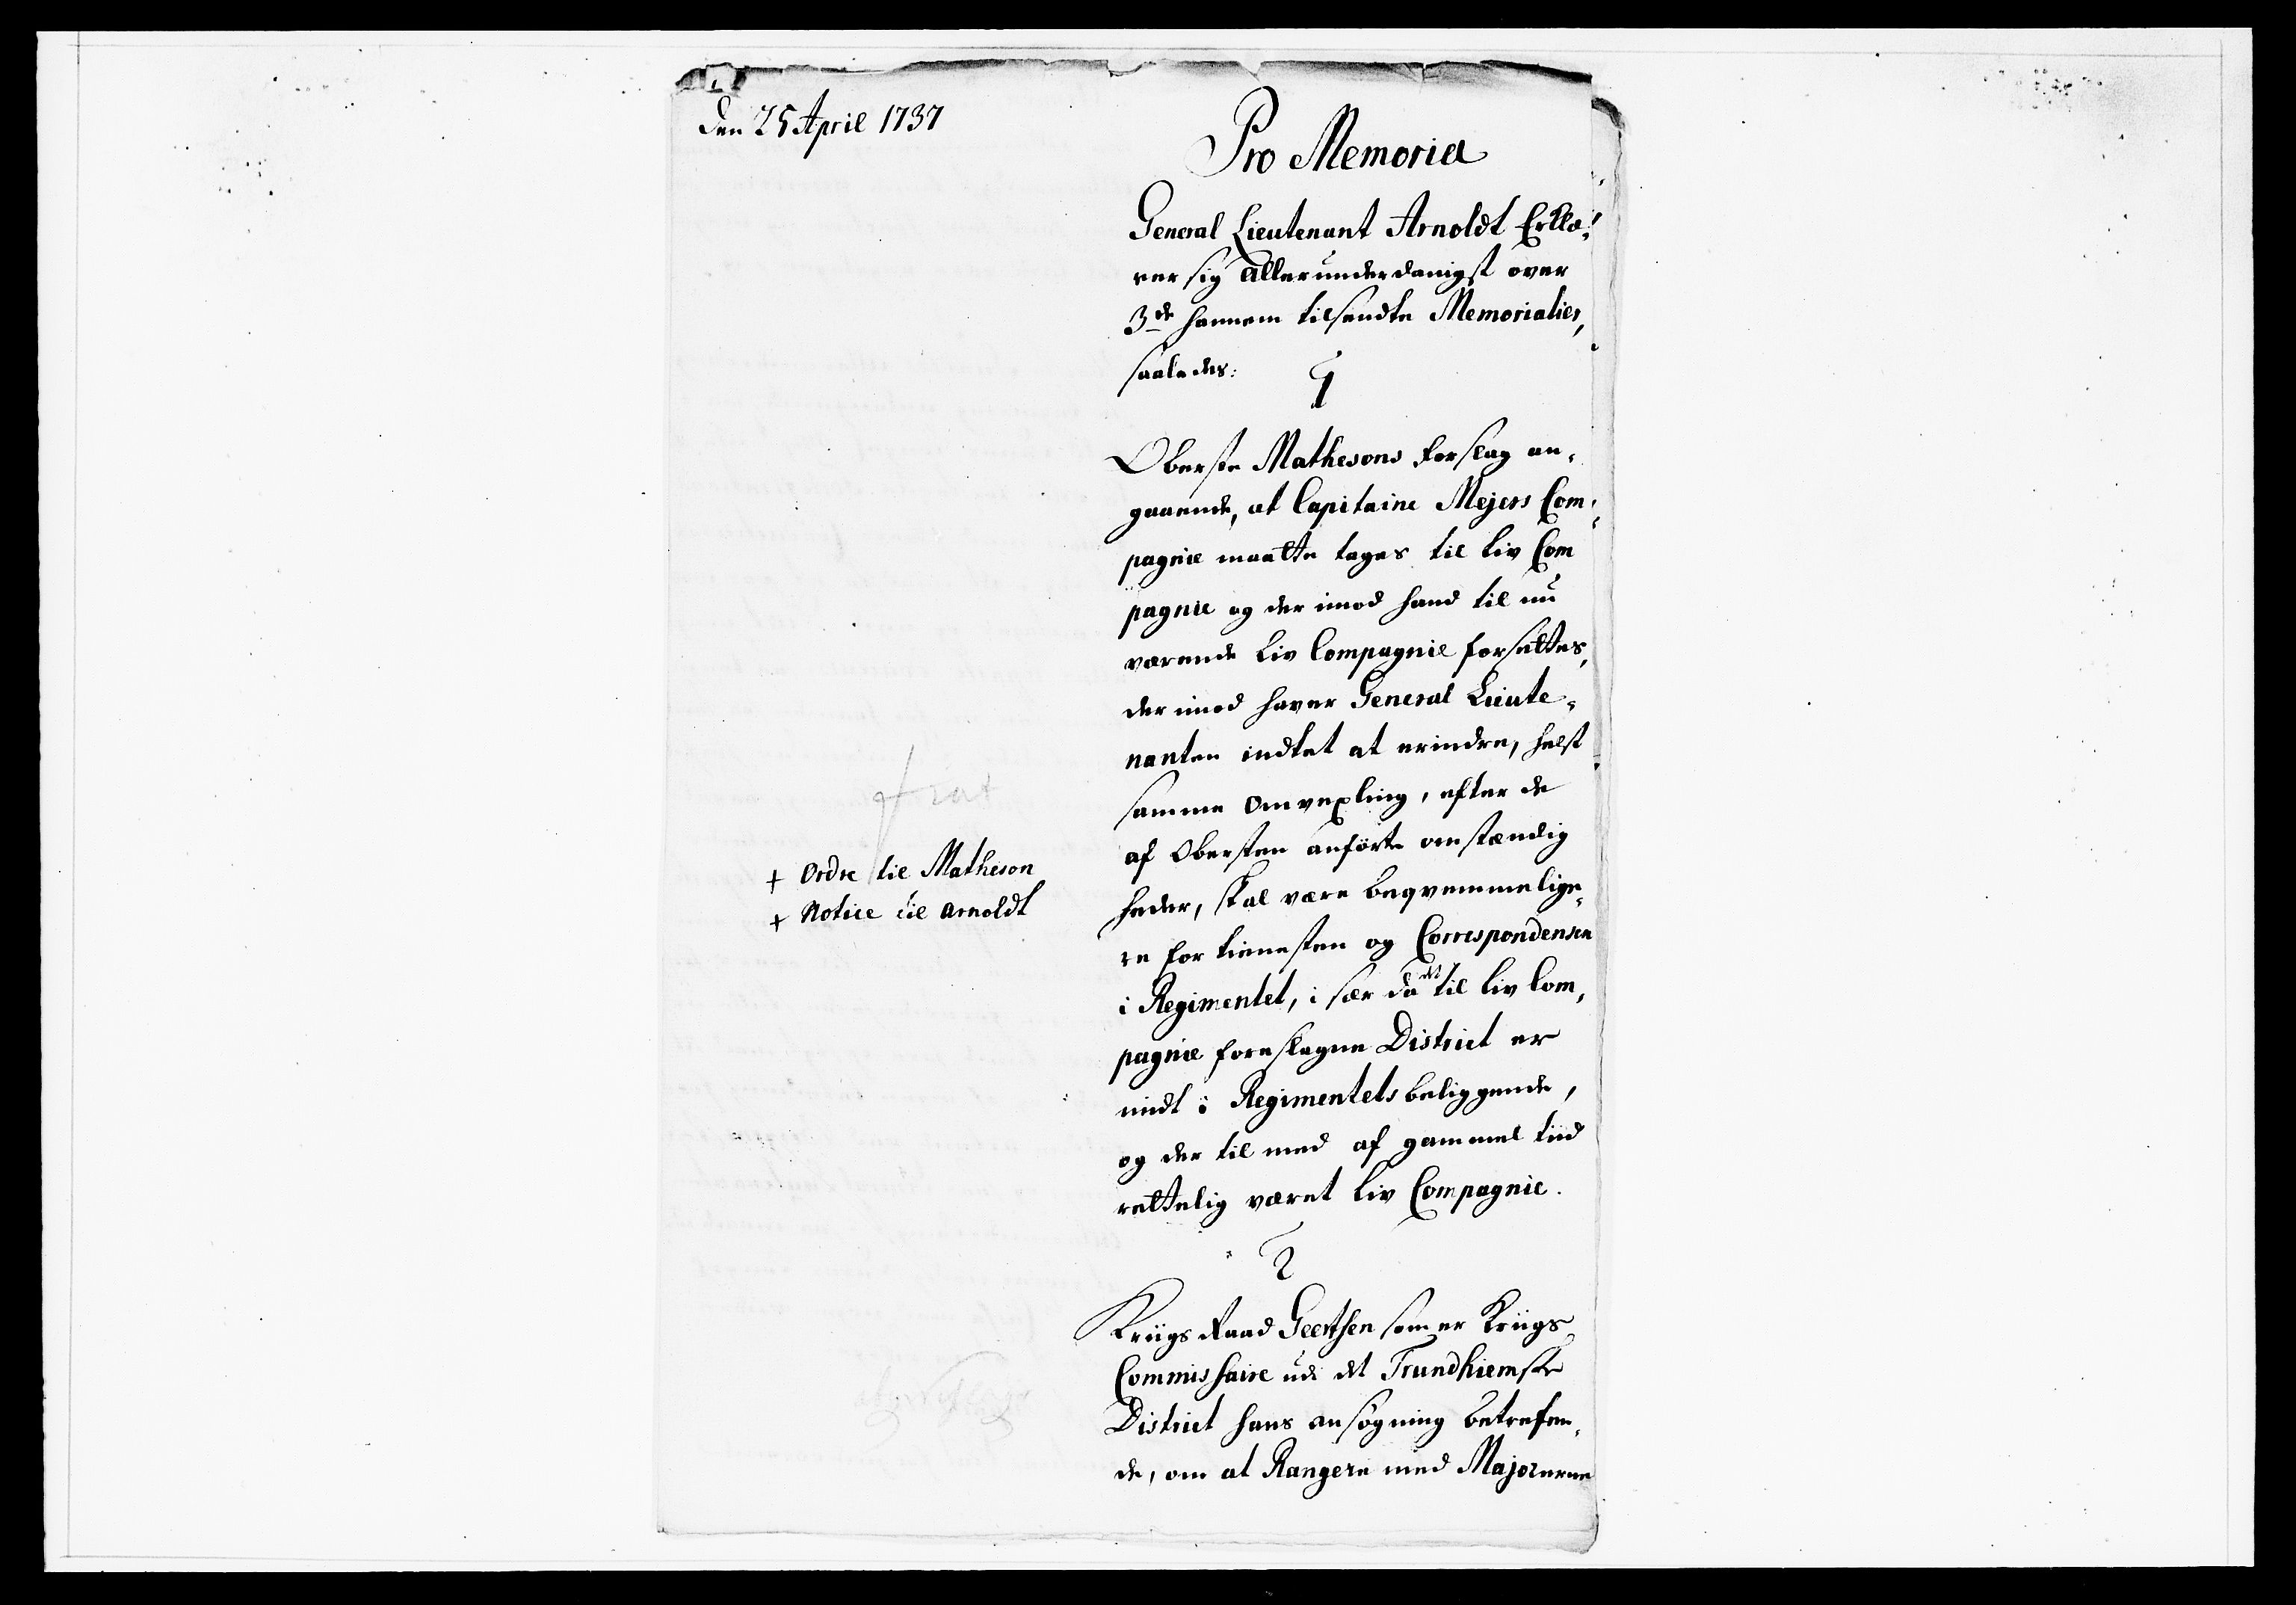 den 25 April 1737
Pro Memoria
General Lieutenant Arnoldt Erklæ-
rer sig allerunderdanigst over
3de hannem tilsendte Memorialier,
saaledes:
1
Oberste Mathesons forslag an-
gaaende, at Capitaine Mejers Com-
pagnie maatte tages til Liv Com
pagnie og der imod hand til nu
værende Liv Compagnie forsættes,
der imod haver General Lieute-
nanten indtet at erindre, helst
samme omvexling, efter de
af Obersten anförte omstændig
heder, skal være beqvemmelige-
re for tienesten og Correspondensen
i Regimentet, i sær da det til Liv Com-
pagnie foreslagne District er
midt i Regimentets beliggende,
og der til med af gammel tiid
rettelig været Liv Compagnie.
fiat
+ Ordre til Matheson
+ Notice til Arnoldt
2
Kriigs Raad Geertsen som er Kriigs
Commissaire udi det Trundhiemske
District hans ansøgning betrefen-
de, om at Rangere med Majorerne